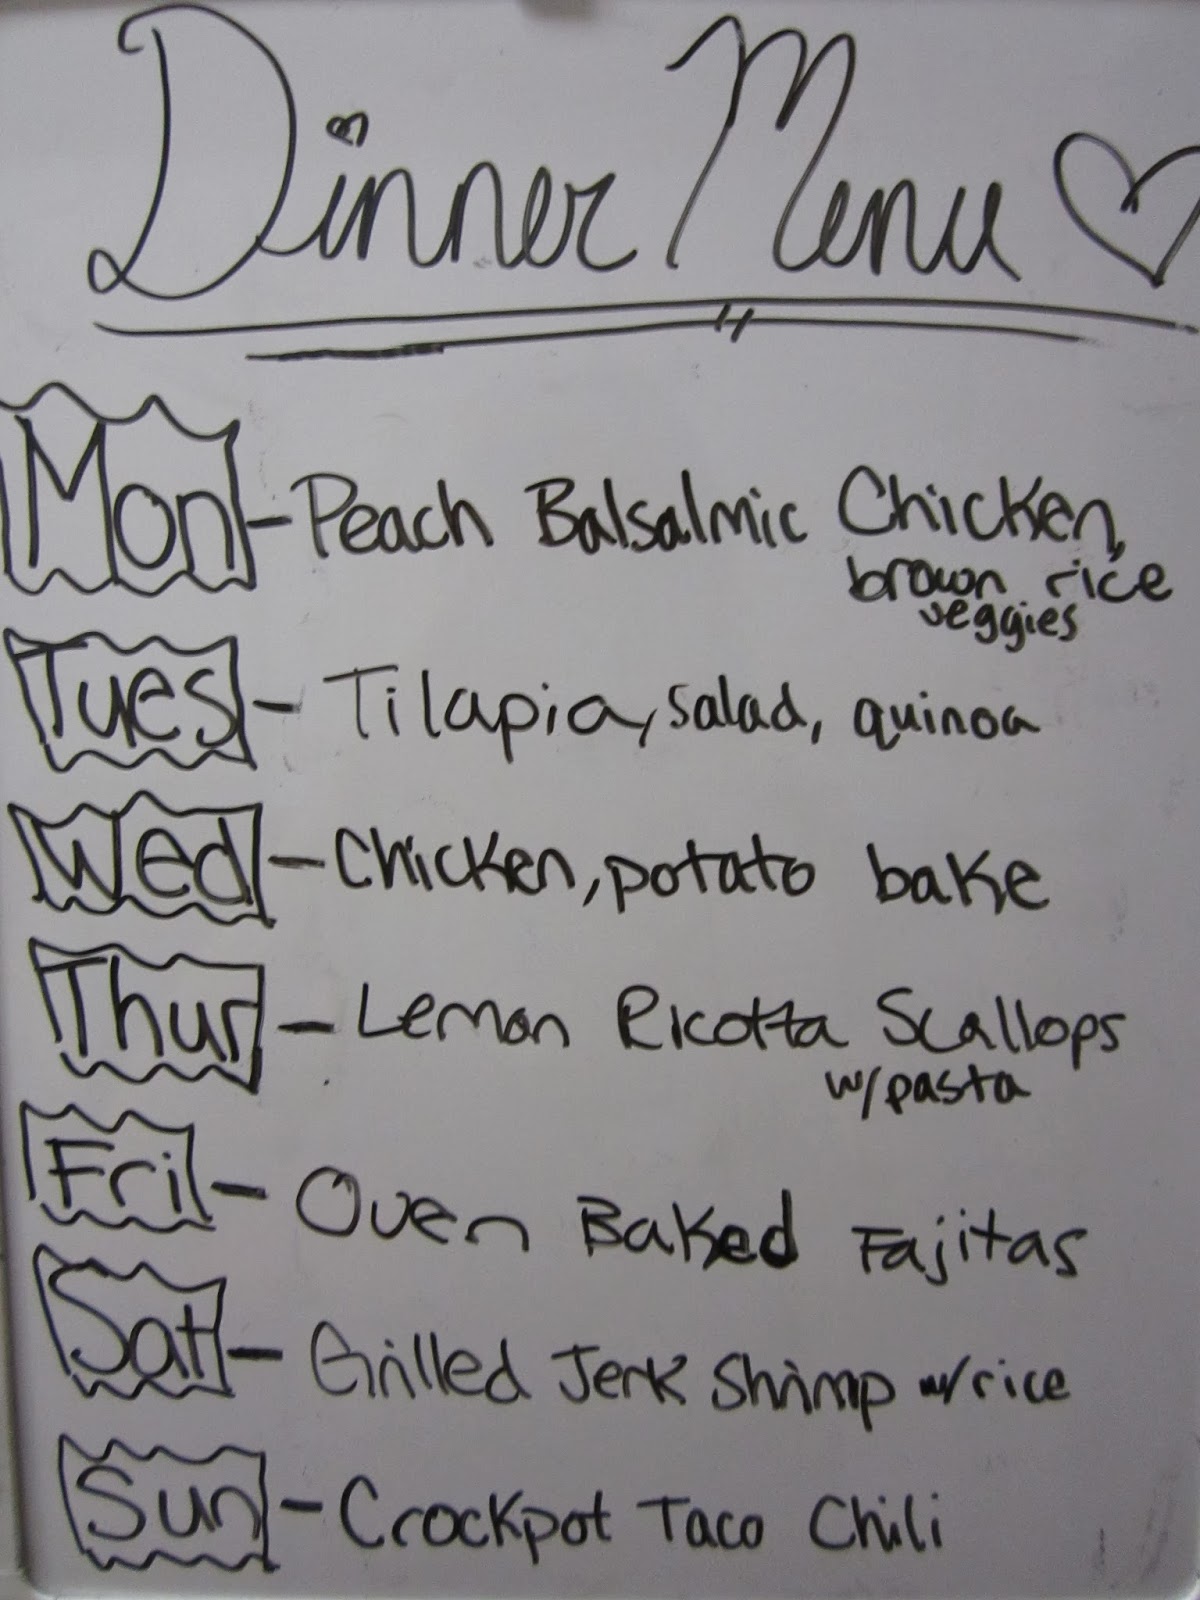 Dinner Menu
Mon - Peach Balsalmic Chicken,
brown rice
veggies
Tues - Tilapia, salad, quinoa
Wed - Chicken, potato bake
Thur - Lemon Ricotta Scallops
w/pasta
Fri - Oven Baked Fajitas
Sat - Grilled Jerk Shrimp w/rice
Sun - Crockpot Taco Chili